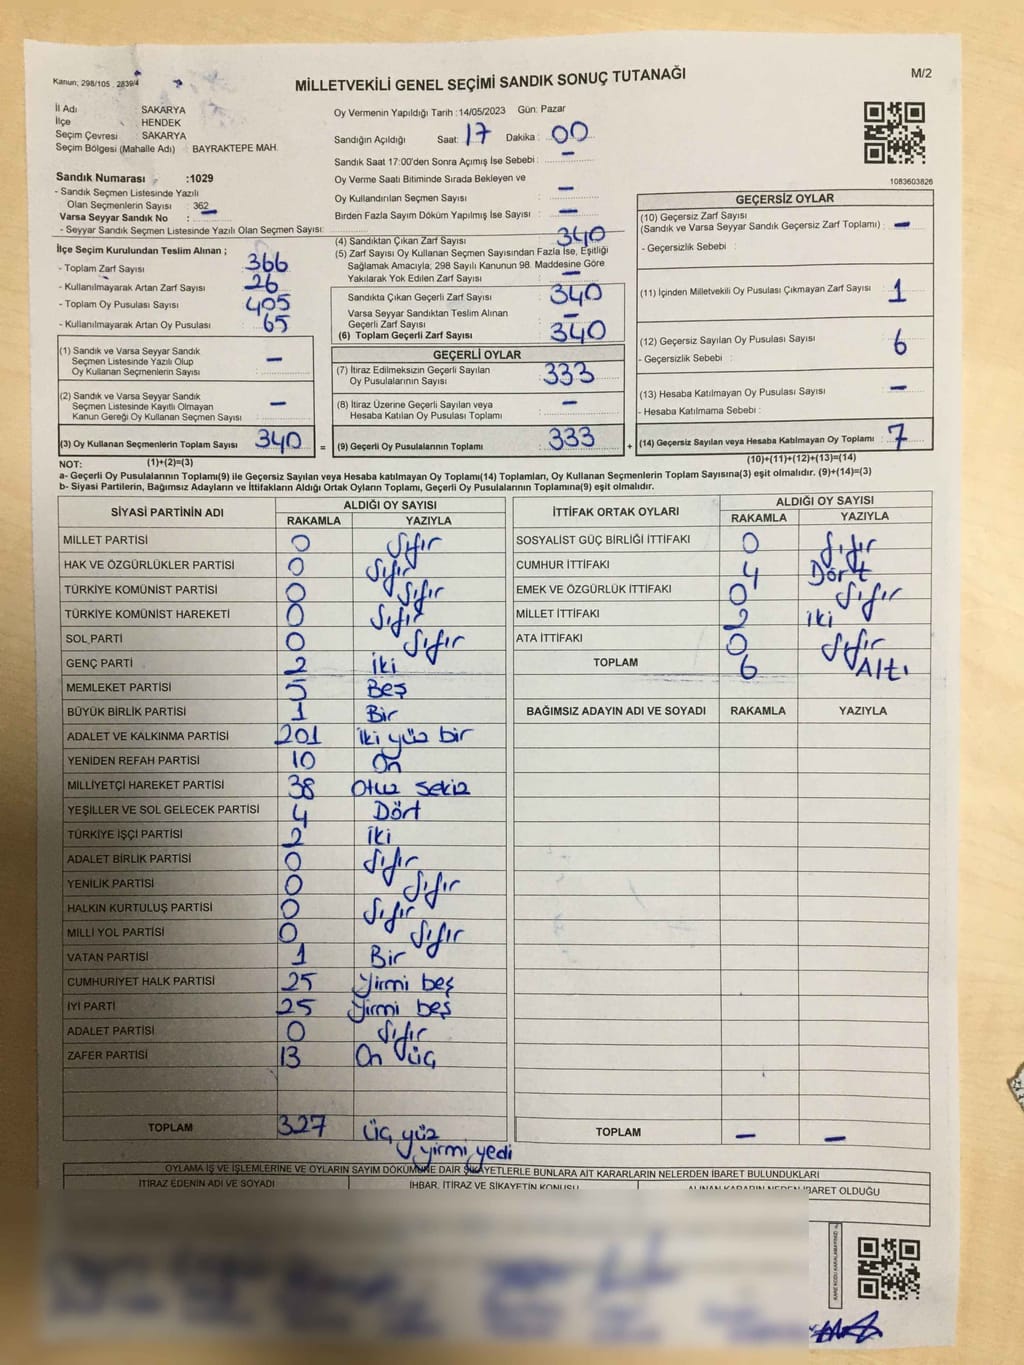 Kanun; 298/105 . 2839/4
MİLLETVEKİLİ GENEL SEÇİMİ SANDIK SONUÇ TUTANAĞI
M/2
İl Adı SAKARYA
İlçe HENDEK
Seçim Çevresi : SAKARYA
Seçim Bölgesi (Mahalle Adı) : BAYRAKTEPE MAH.
Oy Vermenin Yapıldığı Tarih : 14/05/2023 Gün: Pazar
Sandığın Açıldığı Saat: 17 Dakika : 00
Sandık Saat 17:00'den Sonra Açımış İse Sebebi : –
Oy Verme Saati Bitiminde Sırada Bekleyen ve
Oy Kullandırılan Seçmen Sayısı : –
Birden Fazla Sayım Döküm Yapılmış İse Sayısı : –
1083603826
Sandık Numarası :1029
- Sandık Seçmen Listesinde Yazılı
Olan Seçmenlerin Sayısı : 362
Varsa Seyyar Sandık No : –
- Seyyar Sandık Seçmen Listesinde Yazılı Olan Seçmen Sayısı:
İlçe Seçim Kurulundan Teslim Alınan ;
- Toplam Zarf Sayısı 366
- Kullanılmayarak Artan Zarf Sayısı : 26
- Toplam Oy Pusulası Sayısı : 405
- Kullanılmayarak Artan Oy Pusulası : 65
(1) Sandık ve Varsa Seyyar Sandık
Seçmen Listesinde Yazılı Olup
Oy Kullanan Seçmenlerin Sayısı : –
(2) Sandık ve Varsa Seyyar Sandık
Seçmen Listesinde Kayıtlı Olmayan
Kanun Gereği Oy Kullanan Seçmen Sayısı : –
(3) Oy Kullanan Seçmenlerin Toplam Sayısı 340 =
(4) Sandıktan Çıkan Zarf Sayısı : 340
(5) Zarf Sayısı Oy Kullanan Seçmen Sayısından Fazla İse, Eşitliği
Sağlamak Amacıyla; 298 Sayılı Kanunun 98. Maddesine Göre
Yakılarak Yok Edilen Zarf Sayısı : –
Sandıkta Çıkan Geçerli Zarf Sayısı : 340
Varsa Seyyar Sandıktan Teslim Alınan
Geçerli Zarf Sayısı : –
(6) Toplam Geçerli Zarf Sayısı : 340
GEÇERLİ OYLAR
(7) İtiraz Edilmeksizin Geçerli Sayılan
Oy Pusulalarının Sayısı : 333
(8) İtiraz Üzerine Geçerli Sayılan veya
Hesaba Katılan Oy Pusulası Toplamı : –
(9) Geçerli Oy Pusulalarının Toplamı : 333 +
GEÇERSİZ OYLAR
(10) Geçersiz Zarf Sayısı
(Sandık ve Varsa Seyyar Sandık Geçersiz Zarf Toplamı) : –
- Geçersizlik Sebebi :
(11) İçinden Milletvekili Oy Pusulası Çıkmayan Zarf Sayısı : 1
(12) Geçersiz Sayılan Oy Pusulası Sayısı : 6
- Geçersizlik Sebebi :
(13) Hesaba Katılmayan Oy Pusulası Sayısı : –
- Hesaba Katılmama Sebebi :
(14) Geçersiz Sayılan veya Hesaba Katılmayan Oy Toplamı : 7
NOT: (1)+(2)=(3) (10)+(11)+(12)+(13)=(14)
a- Geçerli Oy Pusulalarının Toplamı(9) ile Geçersiz Sayılan veya Hesaba katılmayan Oy Toplamı(14) Toplamları, Oy Kullanan Seçmenlerin Toplam Sayısına(3) eşit olmalıdır. (9)+(14)=(3)
b- Siyasi Partilerin, Bağımsız Adayların ve İttifakların Aldığı Ortak Oyların Toplamı, Geçerli Oy Pusulalarının Toplamına(9) eşit olmalıdır.
SİYASİ PARTİNİN ADI ALDIĞI OY SAYISI
RAKAMLA YAZIYLA
MİLLET PARTİSİ 0 Sıfır
HAK VE ÖZGÜRLÜKLER PARTİSİ 0 Sıfır
TÜRKİYE KOMÜNİST PARTİSİ 0 Sıfır
TÜRKİYE KOMÜNİST HAREKETİ 0 Sıfır
SOL PARTİ 0 Sıfır
GENÇ PARTİ 2 İki
MEMLEKET PARTİSİ 5 Beş
BÜYÜK BİRLİK PARTİSİ 1 Bir
ADALET VE KALKINMA PARTİSİ 201 İki yüz bir
YENİDEN REFAH PARTİSİ 10 On
MİLLİYETÇİ HAREKET PARTİSİ 38 Otuz sekiz
YEŞİLLER VE SOL GELECEK PARTİSİ 4 Dört
TÜRKİYE İŞÇİ PARTİSİ 2 İki
ADALET BİRLİK PARTİSİ 0 Sıfır
YENİLİK PARTİSİ 0 Sıfır
HALKIN KURTULUŞ PARTİSİ 0 Sıfır
MİLLİ YOL PARTİSİ 0 Sıfır
VATAN PARTİSİ 1 Bir
CUMHURİYET HALK PARTİSİ 25 Yirmi beş
İYİ PARTİ 25 Yirmi beş
ADALET PARTİSİ 0 Sıfır
ZAFER PARTİSİ 13 On üç
TOPLAM 327 Üç yüz
yirmi yedi
İTTİFAK ORTAK OYLARI ALDIĞI OY SAYISI
RAKAMLA YAZIYLA
SOSYALİST GÜÇ BİRLİĞİ İTTİFAKI 0 Sıfır
CUMHUR İTTİFAKI 4 Dört
EMEK VE ÖZGÜRLÜK İTTİFAKI 0 Sıfır
MİLLET İTTİFAKI 2 İki
ATA İTTİFAKI 0 Sıfır
TOPLAM 6 Altı
BAĞIMSIZ ADAYIN ADI VE SOYADI RAKAMLA YAZIYLA
TOPLAM – –
OYLAMA İŞ VE İŞLEMLERİNE VE OYLARIN SAYIM DÖKÜMÜNE DAİR ŞİKAYETLERLE BUNLARA AİT KARARLARIN NELERDEN İBARET BULUNDUKLARI
İTİRAZ EDENİN ADI VE SOYADI İHBAR, İTİRAZ VE ŞİKAYETİN KONUSU ALINAN KARARIN NEDEN İBARET OLDUĞU